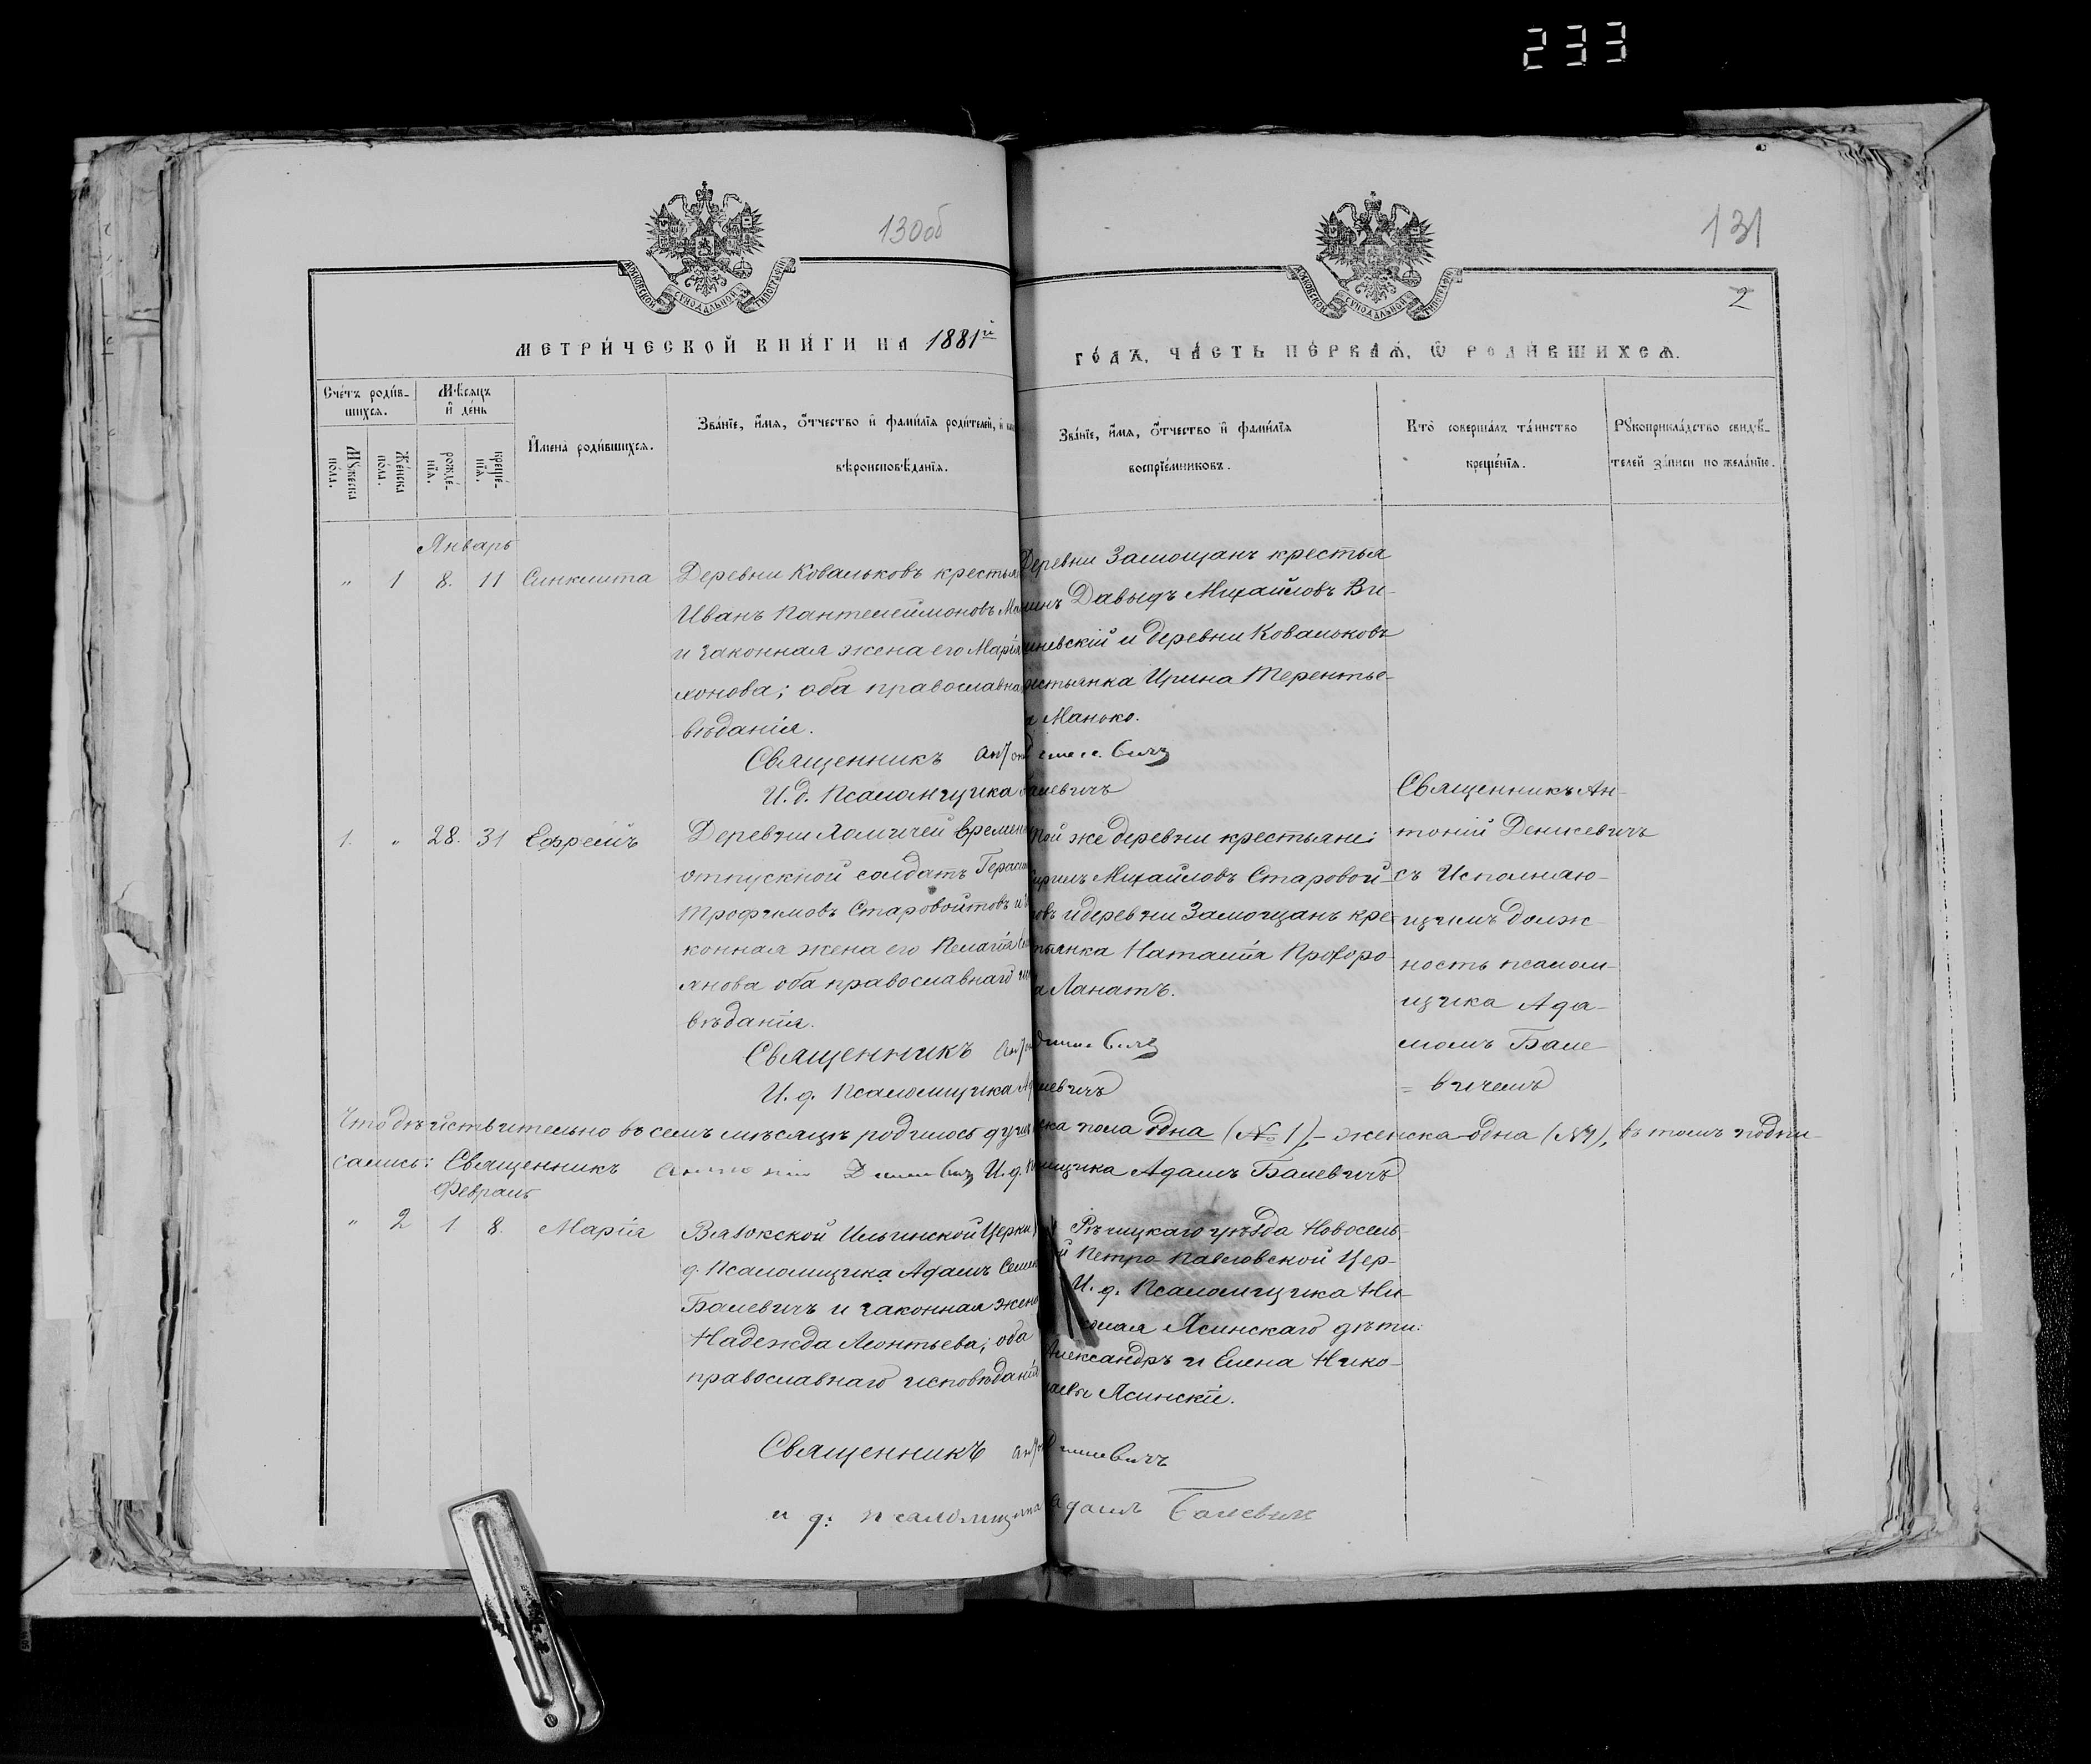 233
130об
131
2
МОСКОВСКОЙ СѴНОДАЛЬНОЙ ТИПОГРАФІИ
МОСКОВСКОЙ СѴНОДАЛЬНОЙ ТИПОГРАФІИ
МЕТРИ́ЧЕСКОЙ КНИ́ГИ НА 1881й
ГО́ДЪ, ЧА́СТЬ ПЕ́РВАѦ, Ѡ РОДИ́ВШИХСѦ.
Сче́тъ роди́в-
шихся.
Мѣ́сяцъ
и҆ де́нь
Мꙋ́жеска
по́ла.
Же́нска
по́ла.
рожде́-
нїѧ.
креще́-
нїѧ.
И҆мена̀ роди́вшихся.
Зва́нїе, и҆́мя, ѻ҆́тчество и҆ фами́лїя роди́телей, и҆
вѣроисповѣ́данїя.
Зва́нїе, и҆́мя, ѻ҆́тчество и҆ фами́лїя
воспрїе́мниковъ.
Кто̀ соверша́лъ та́инство
креще́нїя.
Рꙋкоприкла́дство свидѣ́-
телей за́писи по жела́нїю.
Январь
" 1 8. 11 Синклита
Деревни Ковальковъ крестья
Иванъ Пантелеймоновъ Ма
и законная жена его Марія
хонова; оба православна
вѣданія.
Священникъ Антон
И. д. Псаломщика
Деревни Замощанъ крестья
нинъ Давыдъ Михайловъ Ви-
невскій и деревни Ковальковъ
рестьянка Ирина Терентье-
а Манько.
левичъ
1. " 28. 31 Ефремъ
Деревни Хомичей временн
отпускной солдатъ Герасим
Трофимовъ Старовойтовъ и за
конная жена его Пелагія
янова оба православнаго
вѣданія.
Священникъ Антон
И. д. Псаломщика Ад
Той же деревни крестьяне:
Кирилъ Михайловъ Старовой-
овъ и деревни Замощанъ кре-
тьянка Наталія Прохоро-
а Ланатъ.
левичъ
Священникъ Ан-
тоній Денисевичъ
съ Исполняю-
щимъ долж
ность псалом-
щика Ада-
момъ Бале
= вичемъ
Что дѣйствительно въ семъ мѣсяцѣ родилось душ ска пола одна (№ 1), – женска одна (№1), въ томъ подпи-
сались: Священникъ Антоній Денисевичъ И. д. мщика Адамъ Балевичъ
Февраль
" 2 1 8. Марія
Вязокской Ильинской Церкви
д. Псаломщика Адамъ Семен
Балевичъ и законная жена
Надежда Леонтьева; оба
православнаго исповѣданія
Рѣчицкаго уѣзда Новосель-
й Петро-Павловской Цер-
И. д. Псаломщика Ни-
колая Ясинскаго дѣти:
Александръ и Елена Нико-
лаевы Ясинскіи.
Священникъ Антон Денисевичъ
и д. псаломщика Адамъ Балевичъ